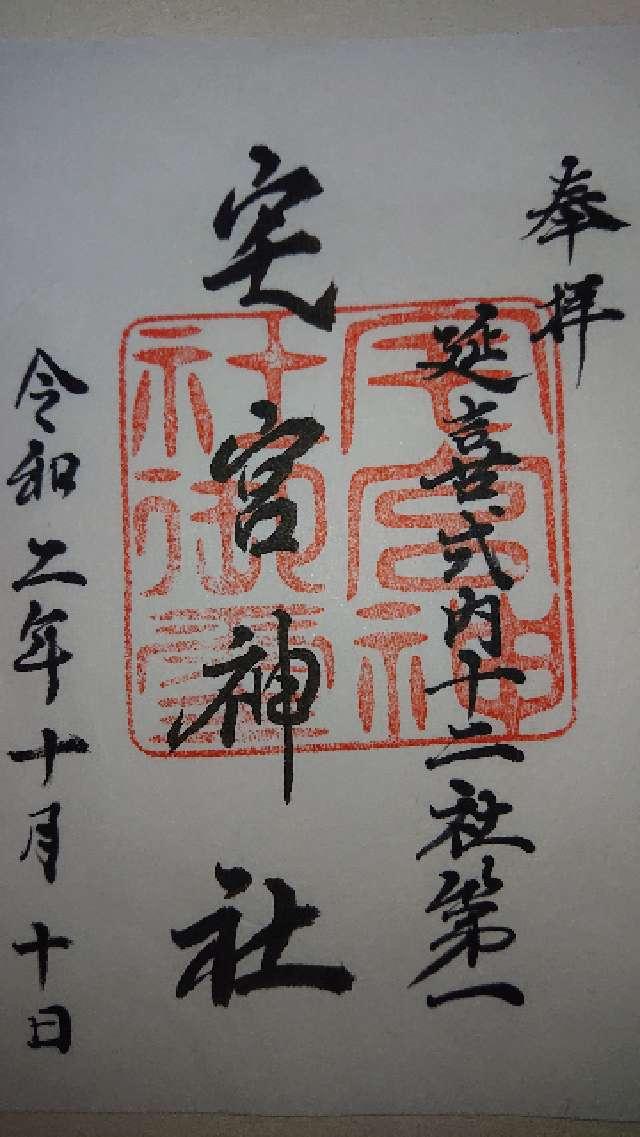 奉拝
延喜式内十二社第一
宅宮神
社御璽
宅宮神社
令和二年十月十日